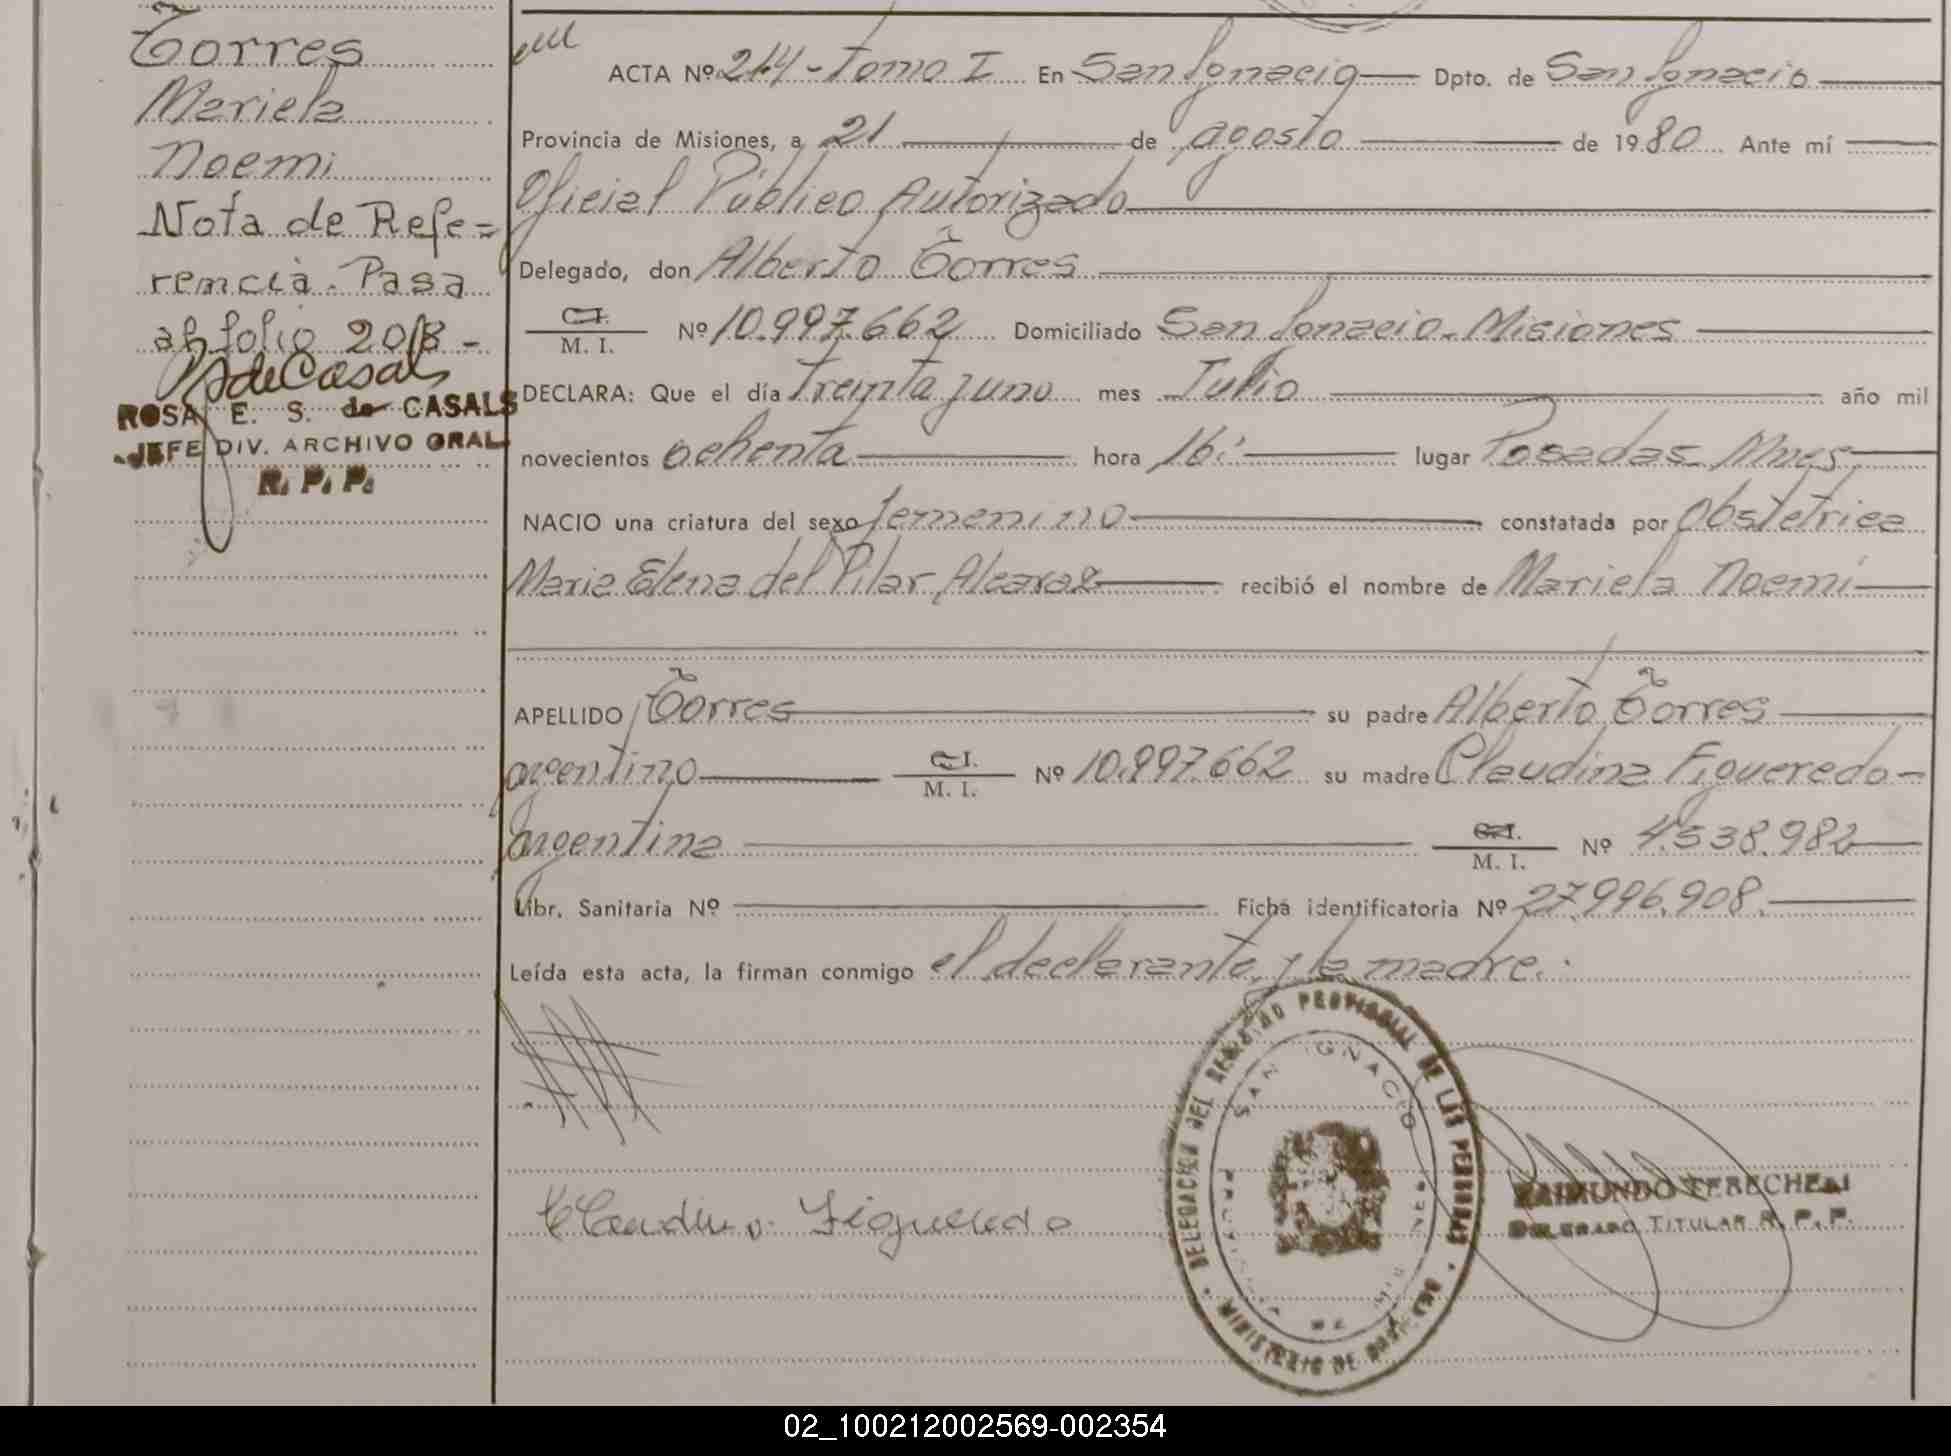 Torres
Mariela
Noemi
Nota de Refe=
rencia. Pasa
al folio 208-
RdeCasals
ROSA E. S. de CASALS
JEFE DIV. ARCHIVO GRAL
R. P. P.
ACTA Nº 244 - Tomo I En San Ignacio Dpto. de San Ignacio
Provincia de Misiones, a 21 de agosto de 1980 Ante mí
Oficial Público Autorizado
Delegado, don Alberto Torres
C.I. / M. I. Nº 10.997.662 Domiciliado San Ignacio-Misiones
DECLARA: Que el día treinta y uno mes Julio año mil
novecientos ochenta hora 16: lugar Posadas Mnes
NACIO una criatura del sexo femenino constatada por Obstetrica
Maria Elena del Pilar Alcaraz recibió el nombre de Mariela Noemi
APELLIDO Torres su padre Alberto Torres
argentino C.I. / M. I. Nº 10.997.662 su madre Claudina Figueredo
argentina C.I. / M. I. Nº 4.538.982
Libr. Sanitaria Nº Ficha identificatoria Nº 27.996.908.
Leída esta acta, la firman conmigo el declarante y la madre.
Claudina Figueredo
DELEGACION DEL REGISTRO PROVINCIAL DE LAS PERSONAS
MINISTERIO DE GOBIERNO
SAN IGNACIO
RAIMUNDO TERECHEN
DELEGADO TITULAR R. P. P.
02_100212002569-002354